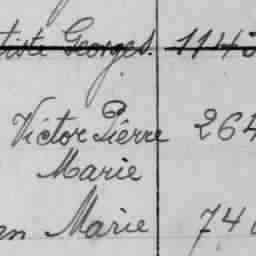 Georges. 114
Victor Pierre 264
Marie
Marie 74